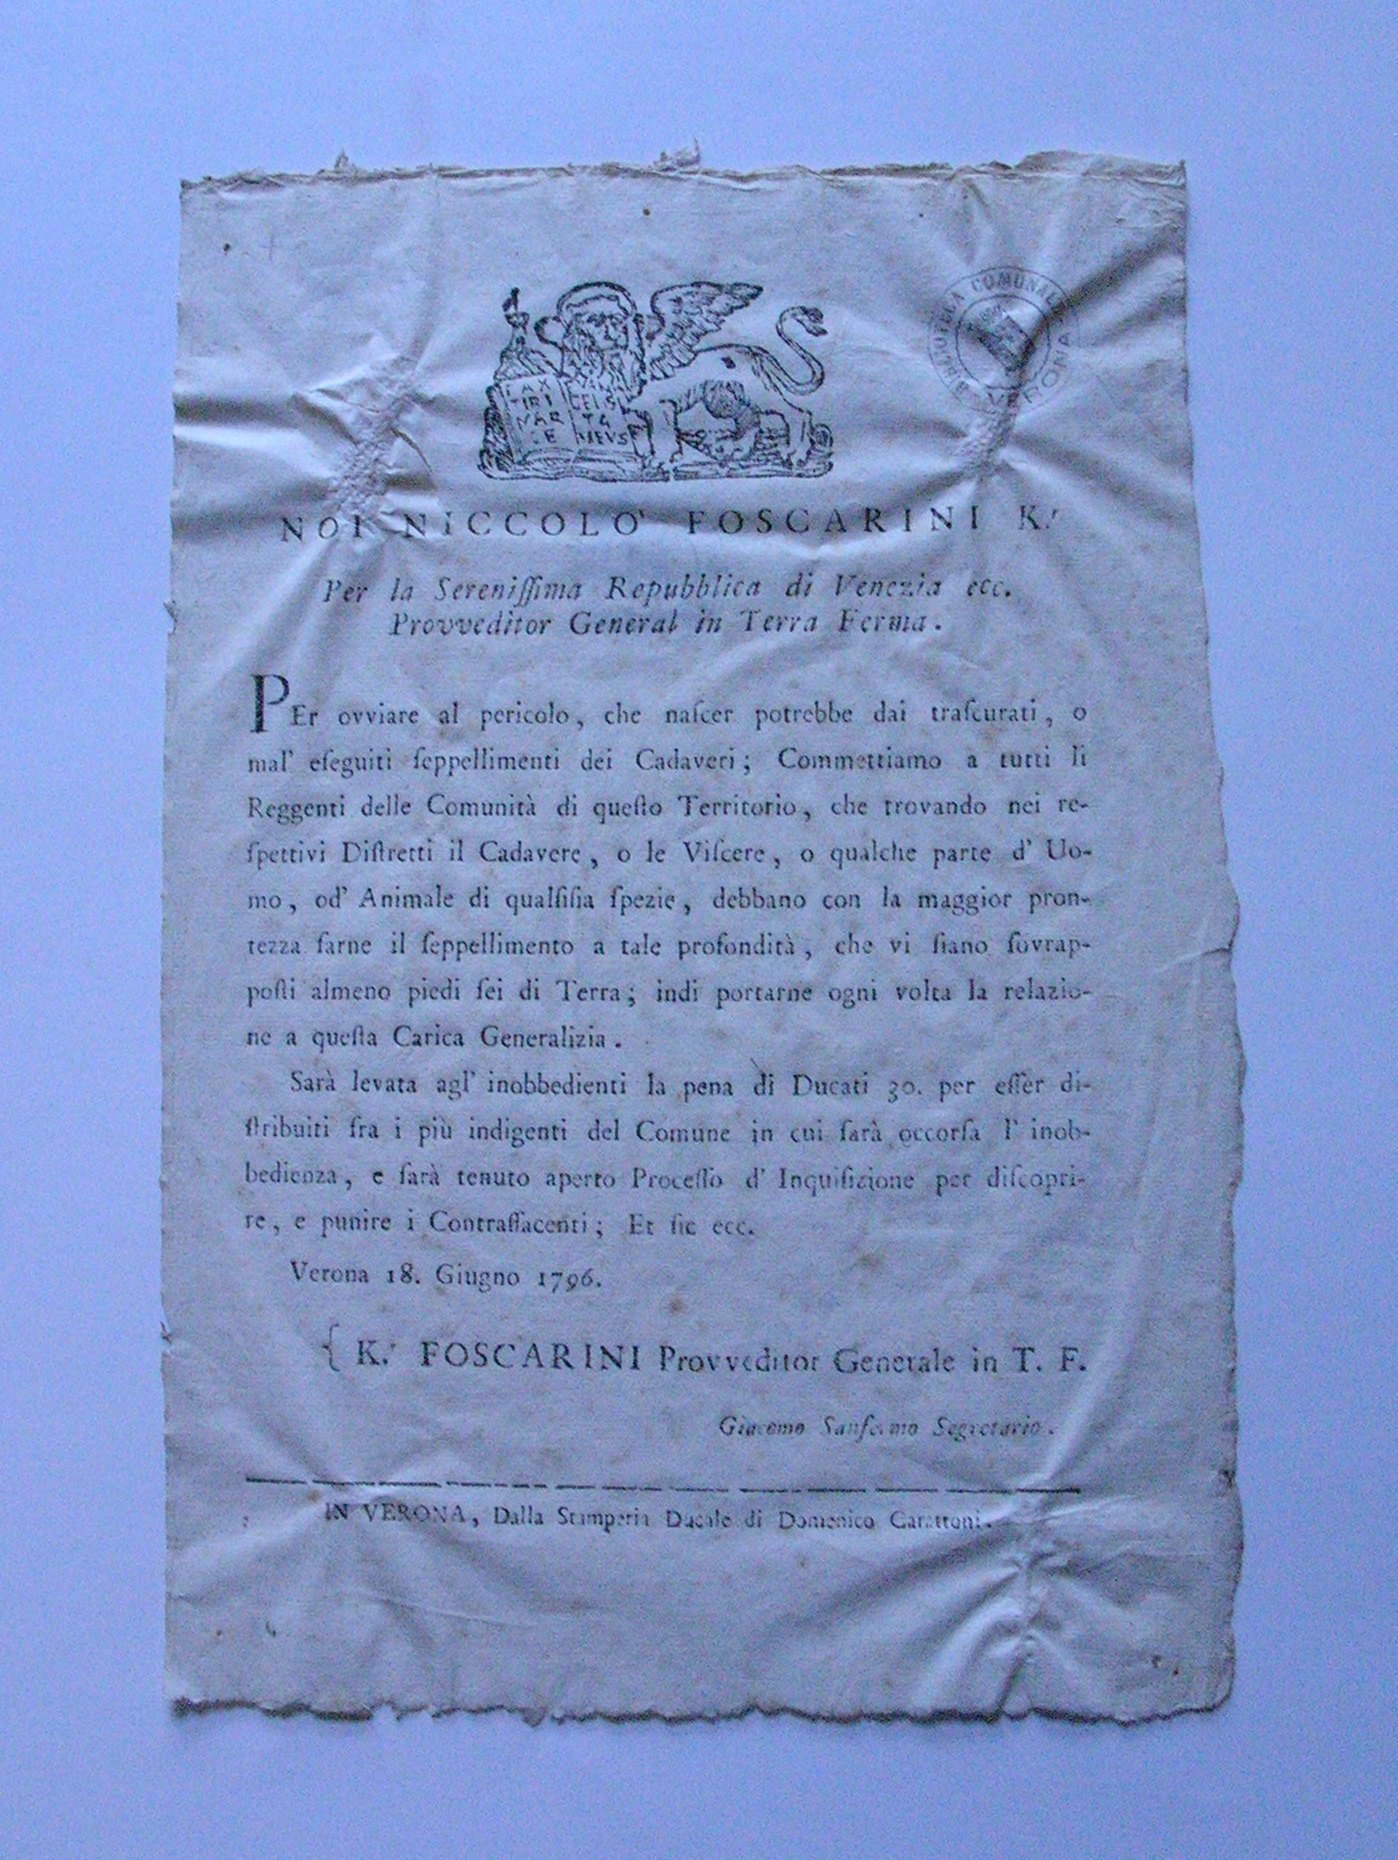 PAX
TIBI
MAR
CE
EVAN
GELIS
TA
MEVS
BIBLIOTECA COMUNALE
VERONA
NOI NICCOLO' FOSCARINI K.r
Per la Sereniſſima Repubblica di Venezia ecc.
Provveditor General in Terra Ferma.
PEr ovviare al pericolo, che naſcer potrebbe dai traſcurati, o
mal' eſeguiti ſeppellimenti dei Cadaveri; Commettiamo a tutti li
Reggenti delle Comunità di queſto Territorio, che trovando nei re-
ſpettivi Diſtretti il Cadavere, o le Viſcere, o qualche parte d' Uo-
mo, od' Animale di qualſiſia ſpezie, debbano con la maggior pron-
tezza farne il ſeppellimento a tale profondità, che vi ſiano ſovrap-
poſti almeno piedi ſei di Terra; indi portarne ogni volta la relazio-
ne a queſta Carica Generalizia.
Sarà levata agl' inobbedienti la pena di Ducati 30. per eſſer di-
ſtribuiti fra i più indigenti del Comune in cui ſarà occorſa l' inob-
bedienza, e ſarà tenuto aperto Proceſſo d' Inquiſizione per diſcopri-
re, e punire i Contraffacenti; Et ſic ecc.
Verona 18. Giugno 1796.
{ K.r FOSCARINI Provveditor Generale in T. F.
Giacomo Sanfermo Segretario.
IN VERONA, Dalla Stamperia Ducale di Domenico Carattoni.